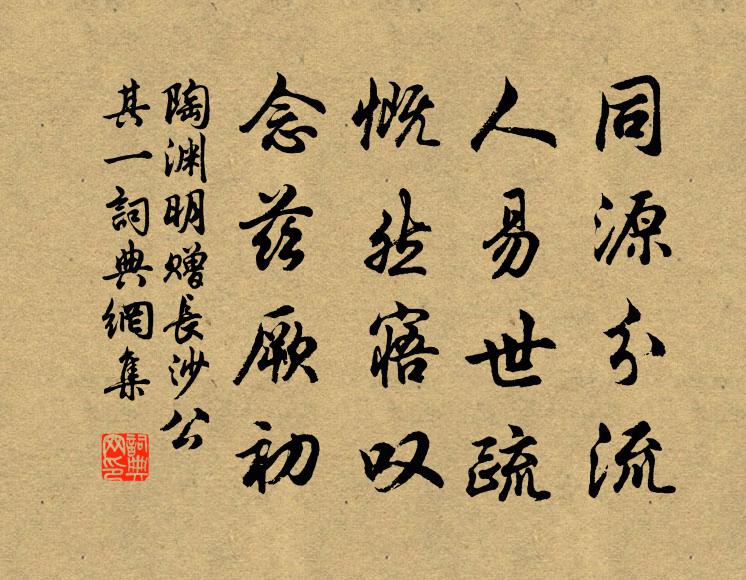 同源分流
人易世疏
慨然寤叹
念兹厥初
陶渊明赠長沙公
其一詞典網集
詞典网印